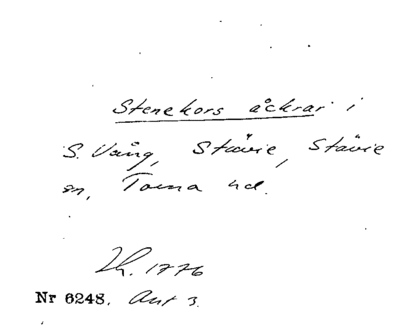 Stenekors åckrar i
S. Vång, Stävie, Stävie
sn, Torna hd.
Lh. 1776
Nr 6248. Akt 3.